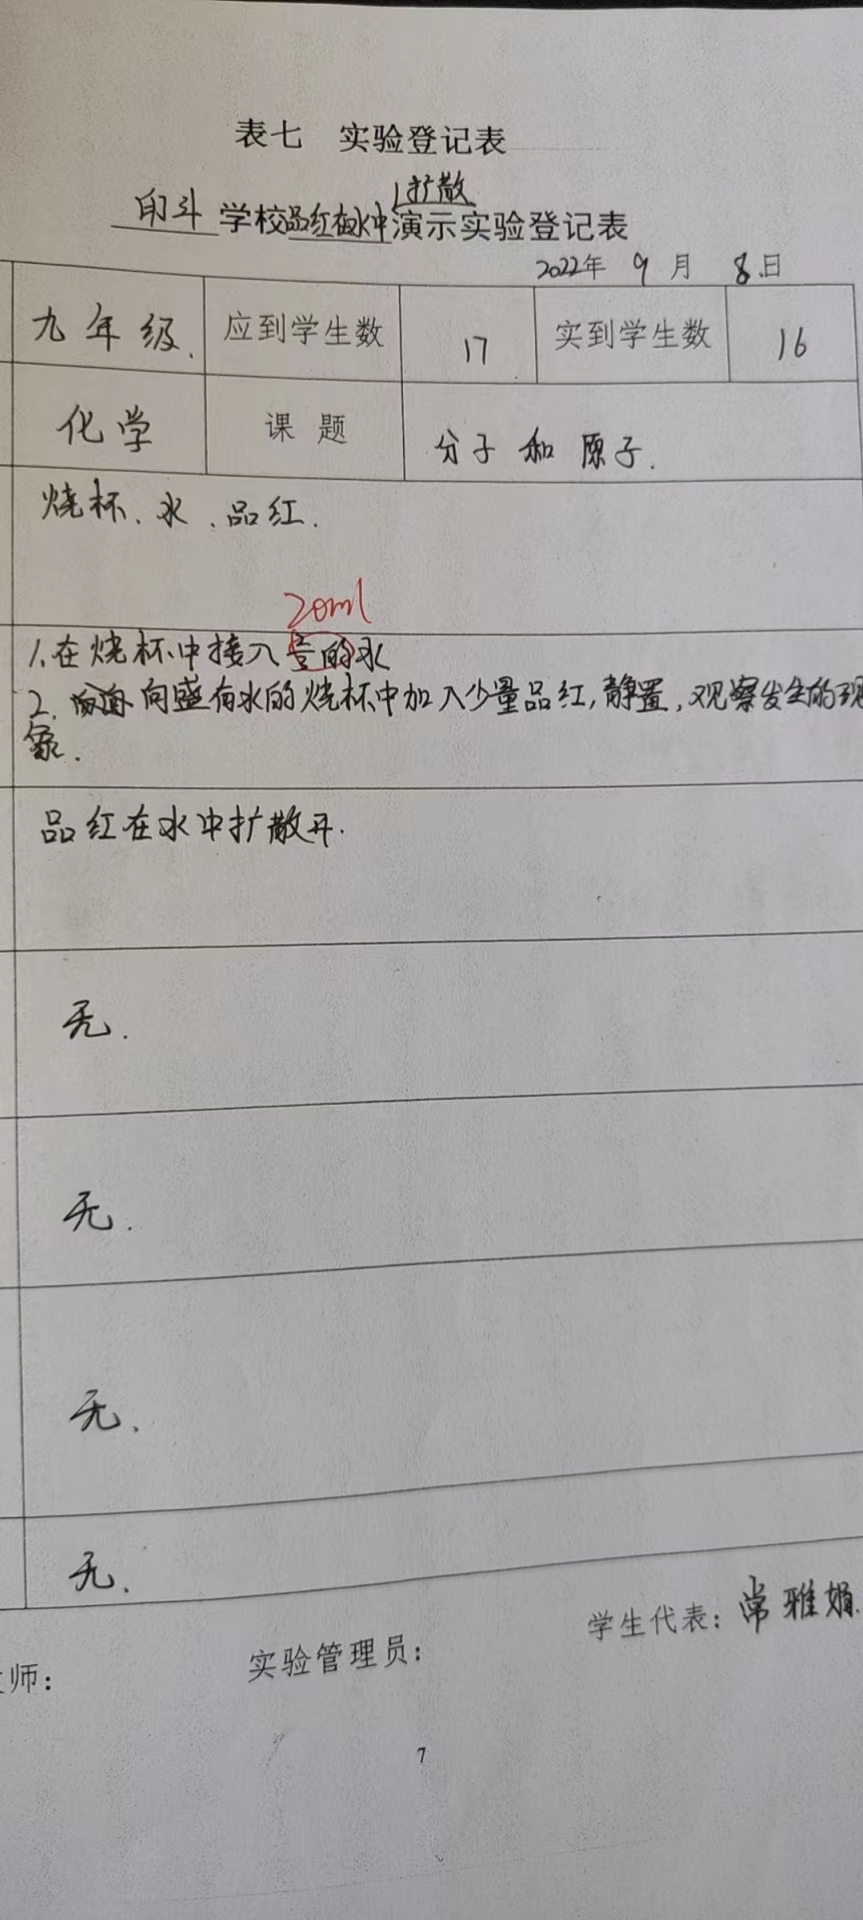 表七 实验登记表
扩散
印斗 学校品红在水中演示实验登记表
2022年 9 月 8 日
九年级. 应到学生数 17 实到学生数 16
化学 课 题 分子和原子.
烧杯、水、品红.
20ml
1.在烧杯中接入 的水
2. 向盛有水的烧杯中加入少量品红,静置,观察发生的现
象.
品红在水中扩散开.
无.
无.
无.
无.
师: 实验管理员: 学生代表: 常雅娟.
7